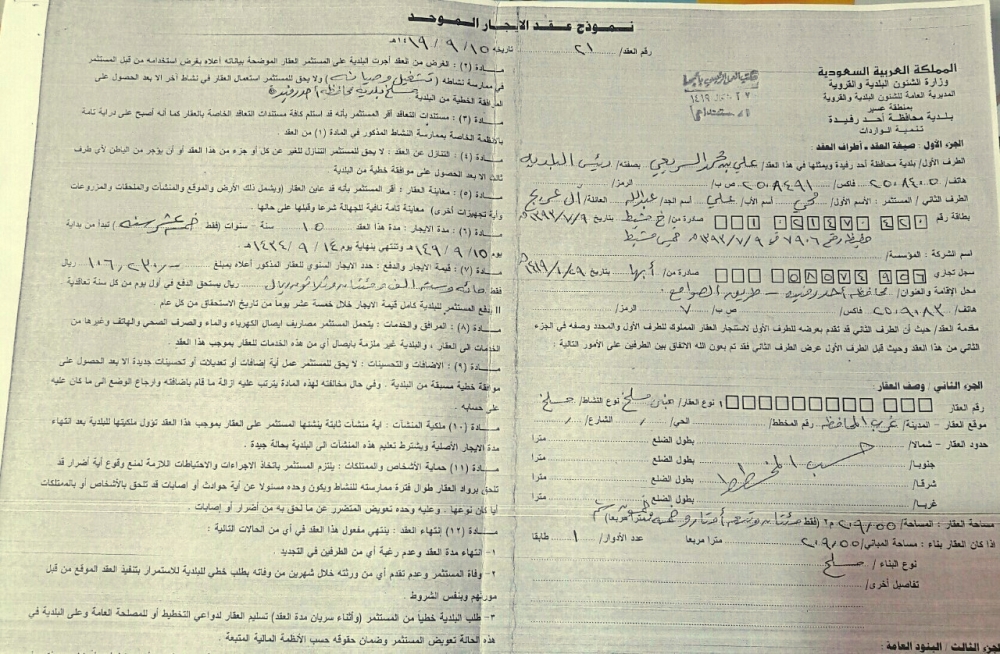 نموذج عقد الايجار الموحد
رقم العقد/ ٢١ تاريخه ١٥ / ٩ / ١٤١٩هـ
المملكة العربية السعودية
وزارة الشئون البلدية والقروية
المديرية العامة للشئون البلدية والقروية
بمنطقة عسير
بلدية محافظة أحد رفيدة
تنمية الواردات
الجزء الأول : صيغة العقد ، أطراف العقد :
الطرف الأول/ بلدية محافظة أحد رفيدة ويمثلها في هذا العقد/ علي بن محمد بصفته/ رئيس البلدية
هاتف/ ٢٥٠٨٤٠٥ فاكس/ ٢٥٠٨٤٩١ ص ب/ الرمز/
الطرف الثاني / المستثمر : الاسم الأول/ اسم الأب/ علي اسم الجد/ عبدالله العائلة/ آل
بطاقة رقم صادرة من/ خ مشيط بتاريخ ١٣٩٣/٧/٩هـ
٧٩٠٦ ١٣٩٣/٧/٩ خميس مشيط
اسم الشركة : المؤسسة/
سجل تجاري صادرة من/ أبها بتاريخ
محل الإقامة والعنوان/ محافظة أحد رفيدة - طريق
هاتف/ ٢٥٠٩٠٨٣ فاكس/ ص ب/ ٧ الرمز/
مقدمة العقد/ حيث أن الطرف الثاني قد تقدم بعرضه للطرف الأول لاستئجار العقار المملوك للطرف الأول والمحدد وصفه في الجزء
الثاني من هذا العقد وحيث قبل الطرف الأول عرض الطرف الثاني فقد تم بعون الله الاتفاق بين الطرفين على الأمور التالية :
الجزء الثاني / وصف العقار :
رقم العقار ١ نوع العقار/ مسلخ نوع النشاط/ مسلخ
موقع العقار - المدينة/ غرب المحافظة رقم المخطط/ الحي/ الشارع/
حدود العقار - شمالا/ بطول الضلع مترا
جنوبا/ بطول الضلع مترا
شرقا/ بطول الضلع مترا
غربا/ بطول الضلع مترا
حسب المخطط
مساحة العقار : المساحة/ ٢٠٩/٥٥ م٢ (فقط مئتان وتسعة أمتار وخمسة وخمسون سم مترا مربعا)
اذا كان العقار بناء : مساحة المباني/ ٢٠٩/٥٥ مترا مربعا عدد الأدوار/ ١ طابقا
نوع البناء / مسلح
تفاصيل أخرى/
الجزء الثالث / البنود العامة :
مـــادة (٢) : الغرض من العقد أجرت البلدية على المستثمر العقار الموضحة بياناته أعلاه بغرض استخدامه من قبل المستثمر
في ممارسة نشاطه ( تشغيل وصيانة ) ولا يحق للمستثمر استعمال العقار في نشاط آخر الا بعد الحصول على
الموافقة الخطية من البلدية مسلخ بلدية محافظة أحد رفيدة
مـــادة (٣) : مستندات التعاقد أقر المستثمر بأنه قد استلم كافة مستندات التعاقد الخاصة بالعقار كما أنه أصبح على دراية تامة
بالأنظمة الخاصة بممارسة النشاط المذكور في المادة (١) من العقد
مـــادة (٤) : التنازل عن العقد : لا يحق للمستثمر التنازل للغير عن كل أو جزء من هذا العقد أو أن يؤجر من الباطن لأي طرف
ثالث الا بعد الحصول على موافقة خطية من البلدية
مـــادة (٥) : معاينة العقار : أقر المستثمر بأنه قد عاين العقار (ويشمل ذلك الأرض والموقع والمنشآت والملحقات والمزروعات
وأية تجهيزات أخرى) معاينة تامة نافية للجهالة شرعا وقبلها على حالها .
مـــادة (٦) : مدة الايجار : مدة هذا العقد ١٥ سنة - سنوات (فقط خمسة عشر سنة ) تبدأ من بداية
يوم ١٥ / ٩ / ١٤١٩هـ وتنتهي بنهاية يوم ١٤ / ٩ / ١٤٣٤هـ
مـــادة (٧) : قيمة الايجار والدفع : حدد الايجار السنوي للعقار المذكور أعلاه بمبلغ ١٠٦,٢٣٠/٠٠ ريال
فقط مائة وستة الف ومئتان وثلاثون ريال ريال يستحق الدفع في أول يوم من كل سنة تعاقدية
يدفع المستثمر للبلدية كامل قيمة الايجار خلال خمسة عشر يوماً من تاريخ الاستحقاق من كل عام
مـــادة (٨) : المرافق والخدمات : يتحمل المستثمر مصاريف ايصال الكهرباء والماء والصرف الصحي والهاتف وغيرها من
الخدمات الى العقار ، والبلدية غير ملزمة بايصال أي من هذه الخدمات للعقار بموجب هذا العقد .
مـــادة (٩) : الاضافات والتحسينات : لا يحق للمستثمر عمل أية إضافات أو تعديلات أو تحسينات جديدة الا بعد الحصول على
موافقة خطية مسبقة من البلدية . وفي حال مخالفته لهذه المادة يترتب عليه ازالة ما قام بأضافته وارجاع الوضع الى ما كان عليه
على حسابه .
مـــادة (١٠) : ملكية المنشآت : أية منشآت ثابتة ينشئها المستثمر على العقار بموجب هذا العقد تؤول ملكيتها للبلدية بعد انتهاء
مدة الايجار الأصلية ويشترط تعليم هذه المنشآت الى البلدية بحالة جيدة .
مـــادة (١١) حماية الأشخاص والممتلكات : يلتزم المستثمر باتخاذ الاجراءات والاحتياطات اللازمة لمنع وقوع أية أضرار قد
تلحق برواد العقار طوال فترة ممارسته للنشاط ويكون وحده مسئولا عن أية حوادث أو اصابات قد تلحق بالأشخاص أو بالممتلكات
أيا كان نوعها . وعليه وحده تعويض المتضرر عن ما لحق به من أضرار أو إصابات .
مـــادة (١٢) انتهاء العقد : ينتهي مفعول هذا العقد في أي من الحالات التالية :
١- انتهاء مدة العقد وعدم رغبة أي من الطرفين في التجديد .
٢- وفاة المستثمر وعدم تقدم أي من ورثته خلال شهرين من وفاته بطلب خطي للبلدية للاستمرار بتنفيذ العقد الموقع من قبل
مورثهم وبنفس الشروط
٣- طلب البلدية خطيا من المستثمر (وأثناء سريان مدة العقد) تسليم العقار لدواعي التخطيط أو للمصلحة العامة وعلى البلدية في
هذه الحالة تعويض المستثمر وضمان حقوقه حسب الأنظمة المالية المتبعة .